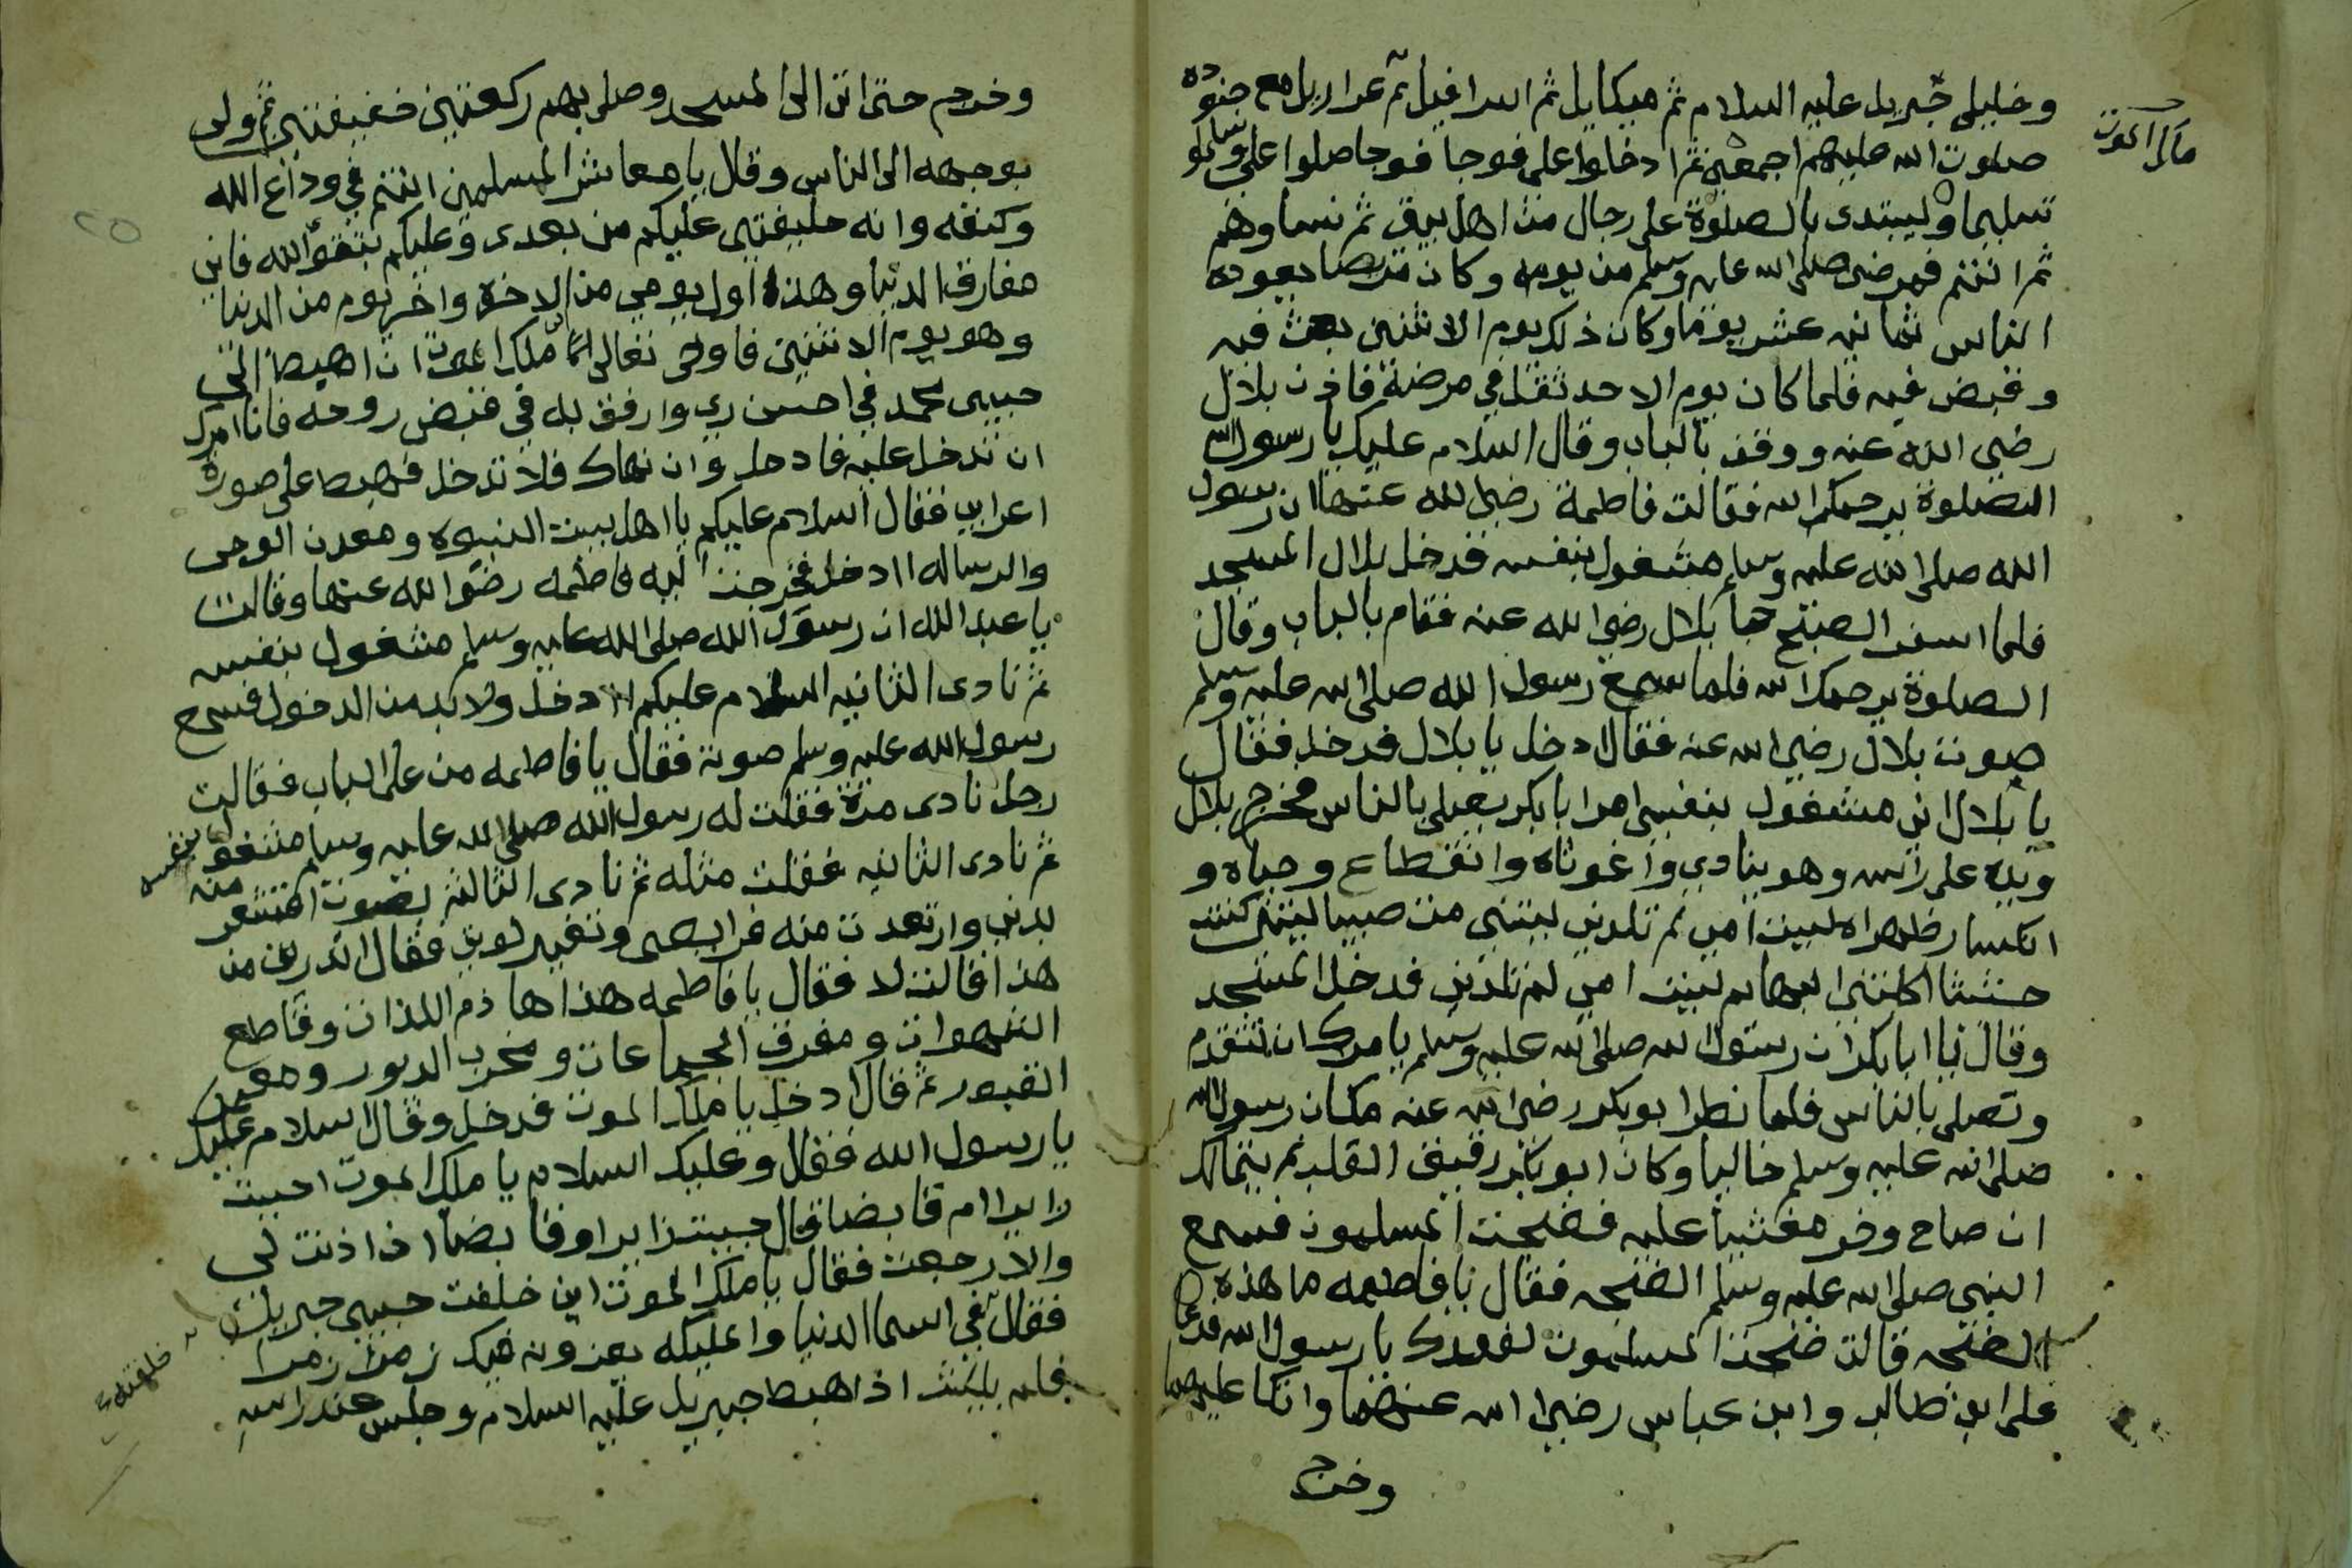 وخليلي جبريل عليه السلام ثم ميكايل ثم اسرافيل ثم عزراييل مع جنوده
ملك الموت
صلوت الله عليهم اجمعين ثم ادخلوا على فوجا فوجا صلوا على وسلموا
تسليما وليبتدى بالصلوة على رجال من اهل بيتى ثم نساوهم
ثم انتم فمرض صلى الله عليه وسلم من يومه وكان مريضا يعوده
الناس ثمانيه عشر يوما وكان ذلك يوم الاثنين بعث فيه
وقبض فيه فلما كان يوم الاحد ثقل في مرضه فاذن بلال
رضي الله عنه ووقف بالباب وقال السلام عليك يا رسول الله
الصلوة يرحمك الله فقالت فاطمة رضي الله عنها ان رسول
الله صلى الله عليه وسلم مشغول بنفسه فدخل بلال المسجد
فلما اسفر الصبح جا بلال رضي الله عنه فقام بالباب وقال
الصلوة يرحمك الله فلما سمع رسول الله صلى الله عليه وسلم
صوت بلال رضي الله عنه فقال ادخل يا بلال فدخل فقال
يا بلال اني مشغول بنفسي امر ابا بكر يصلي بالناس فخرج بلال
ويده على راسه وهو ينادي واغوثاه وانقطاع وجباه و
انكسار ظهراه ليت امي لم تلدني ليتني مت صبيا ليتني كنت
حشيشا اكلتني البهايم ليت امي لم تلدني فدخل المسجد
وقال يا ابا بكر ان رسول الله صلى الله عليه وسلم يامرك ان تتقدم
وتصلي بالناس فلما نظر ابو بكر رضي الله عنه مكان رسول الله
صلى الله عليه وسلم خاليا وكان ابو بكر رقيق القلب لم يتمالك
ان صاح وخر مغشيا عليه فضجت المسلمون فسمع
النبي صلى الله عليه وسلم الضجه فقال يا فاطمه ما هذه
الضجه قالت ضجت المسلمون لفقدك يا رسول الله فدعا
على ابن طالب وابن عباس رضي الله عنهما واتكا عليهما
وخرج
وخرج حتى اتى الى المسجد وصلى بهم ركعتين خفيفتين ثم ولى
بوجهه الى الناس وقال يا معاشر المسلمين انتم في وداع الله
وكنفه وانه خليفتي عليكم من بعدى وعليكم بتقو الله فاني
مفارق الدنيا وهذه اول يومي من الاخره واخر يوم من الدنيا
وهو يوم الاثنين فاوحى تعالى الى ملك الموت ان اهبط الى
حبيبى محمد في احسن زي وارفق به في قبض روحه فانا امرك
ان تدخل عليه فادخل وان نهاك فلا تدخل فهبط على صورة
اعرابي فقال السلام عليكم يا اهل بيت النبوه ومعدن الوحى
والرساله اادخل فخرجت اليه فاطمه رضى الله عنها وقالت
يا عبد الله ان رسول الله صلى الله عليه وسلم مشغول بنفسه
ثم نادى الثانيه السلام عليكم اادخل ولابد من الدخول فسمع
رسول الله عليه وسلم صوته فقال يا فاطمه من على الباب فقالت
رجل نادى مرة فقلت له رسول الله صلى الله عليه وسلم مشغول بنفسه
ثم نادى الثانيه فقلت مثله ثم نادى الثالثه بصوت اقشعر منه
بدني وارتعدت منه فرايصى وتغير لوني فقال اتدرين من
هذا قالت لا فقال يا فاطمه هذا هاذم اللذات وقاطع
الشهوات ومفرق الجماعات ومخرب الدور ومعمر
القبور ثم قال ادخل يا ملك الموت فدخل وقال السلام عليك
يا رسول الله فقال وعليك السلام يا ملك الموت اجيت
زايرا ام قابضا قال جيت زايرا وقابضا ان اذنت لي
والا رجعت فقال يا ملك الموت اين خلفت حبيبي جبريل
فقال في اسما الدنيا والمليكه يعزونه فيك زمرا زمرا
فلم يلبث اذ اهبط جبريل عليه السلام وجلس عند راسه
خلفته